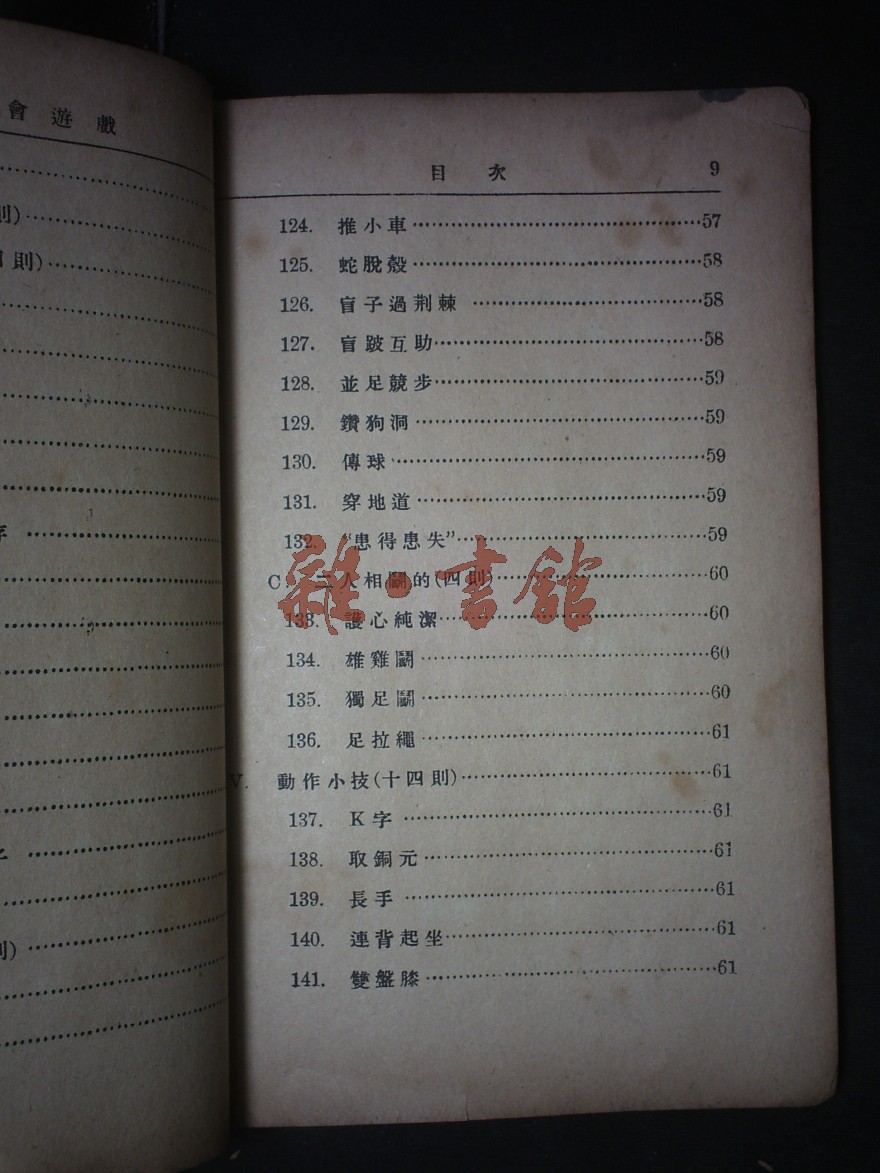 會遊戲
則)
則)
則)
目次 9
124. 推小車……57
125. 蛇脫殼……58
126. 盲子過荆棘……58
127. 盲跛互助……58
128. 並足競步……59
129. 鑽狗洞……59
130. 傳球……59
131. 穿地道……59
132. “患得患失”……59
C. 二人相鬭的(四則)……60
133. 護心純潔……60
134. 雄雞鬭……60
135. 獨足鬭……60
136. 足拉繩……61
V. 動作小技(十四則)……61
137. K字……61
138. 取銅元……61
139. 長手……61
140. 連背起坐……61
141. 雙盤膝……61
雜·書館